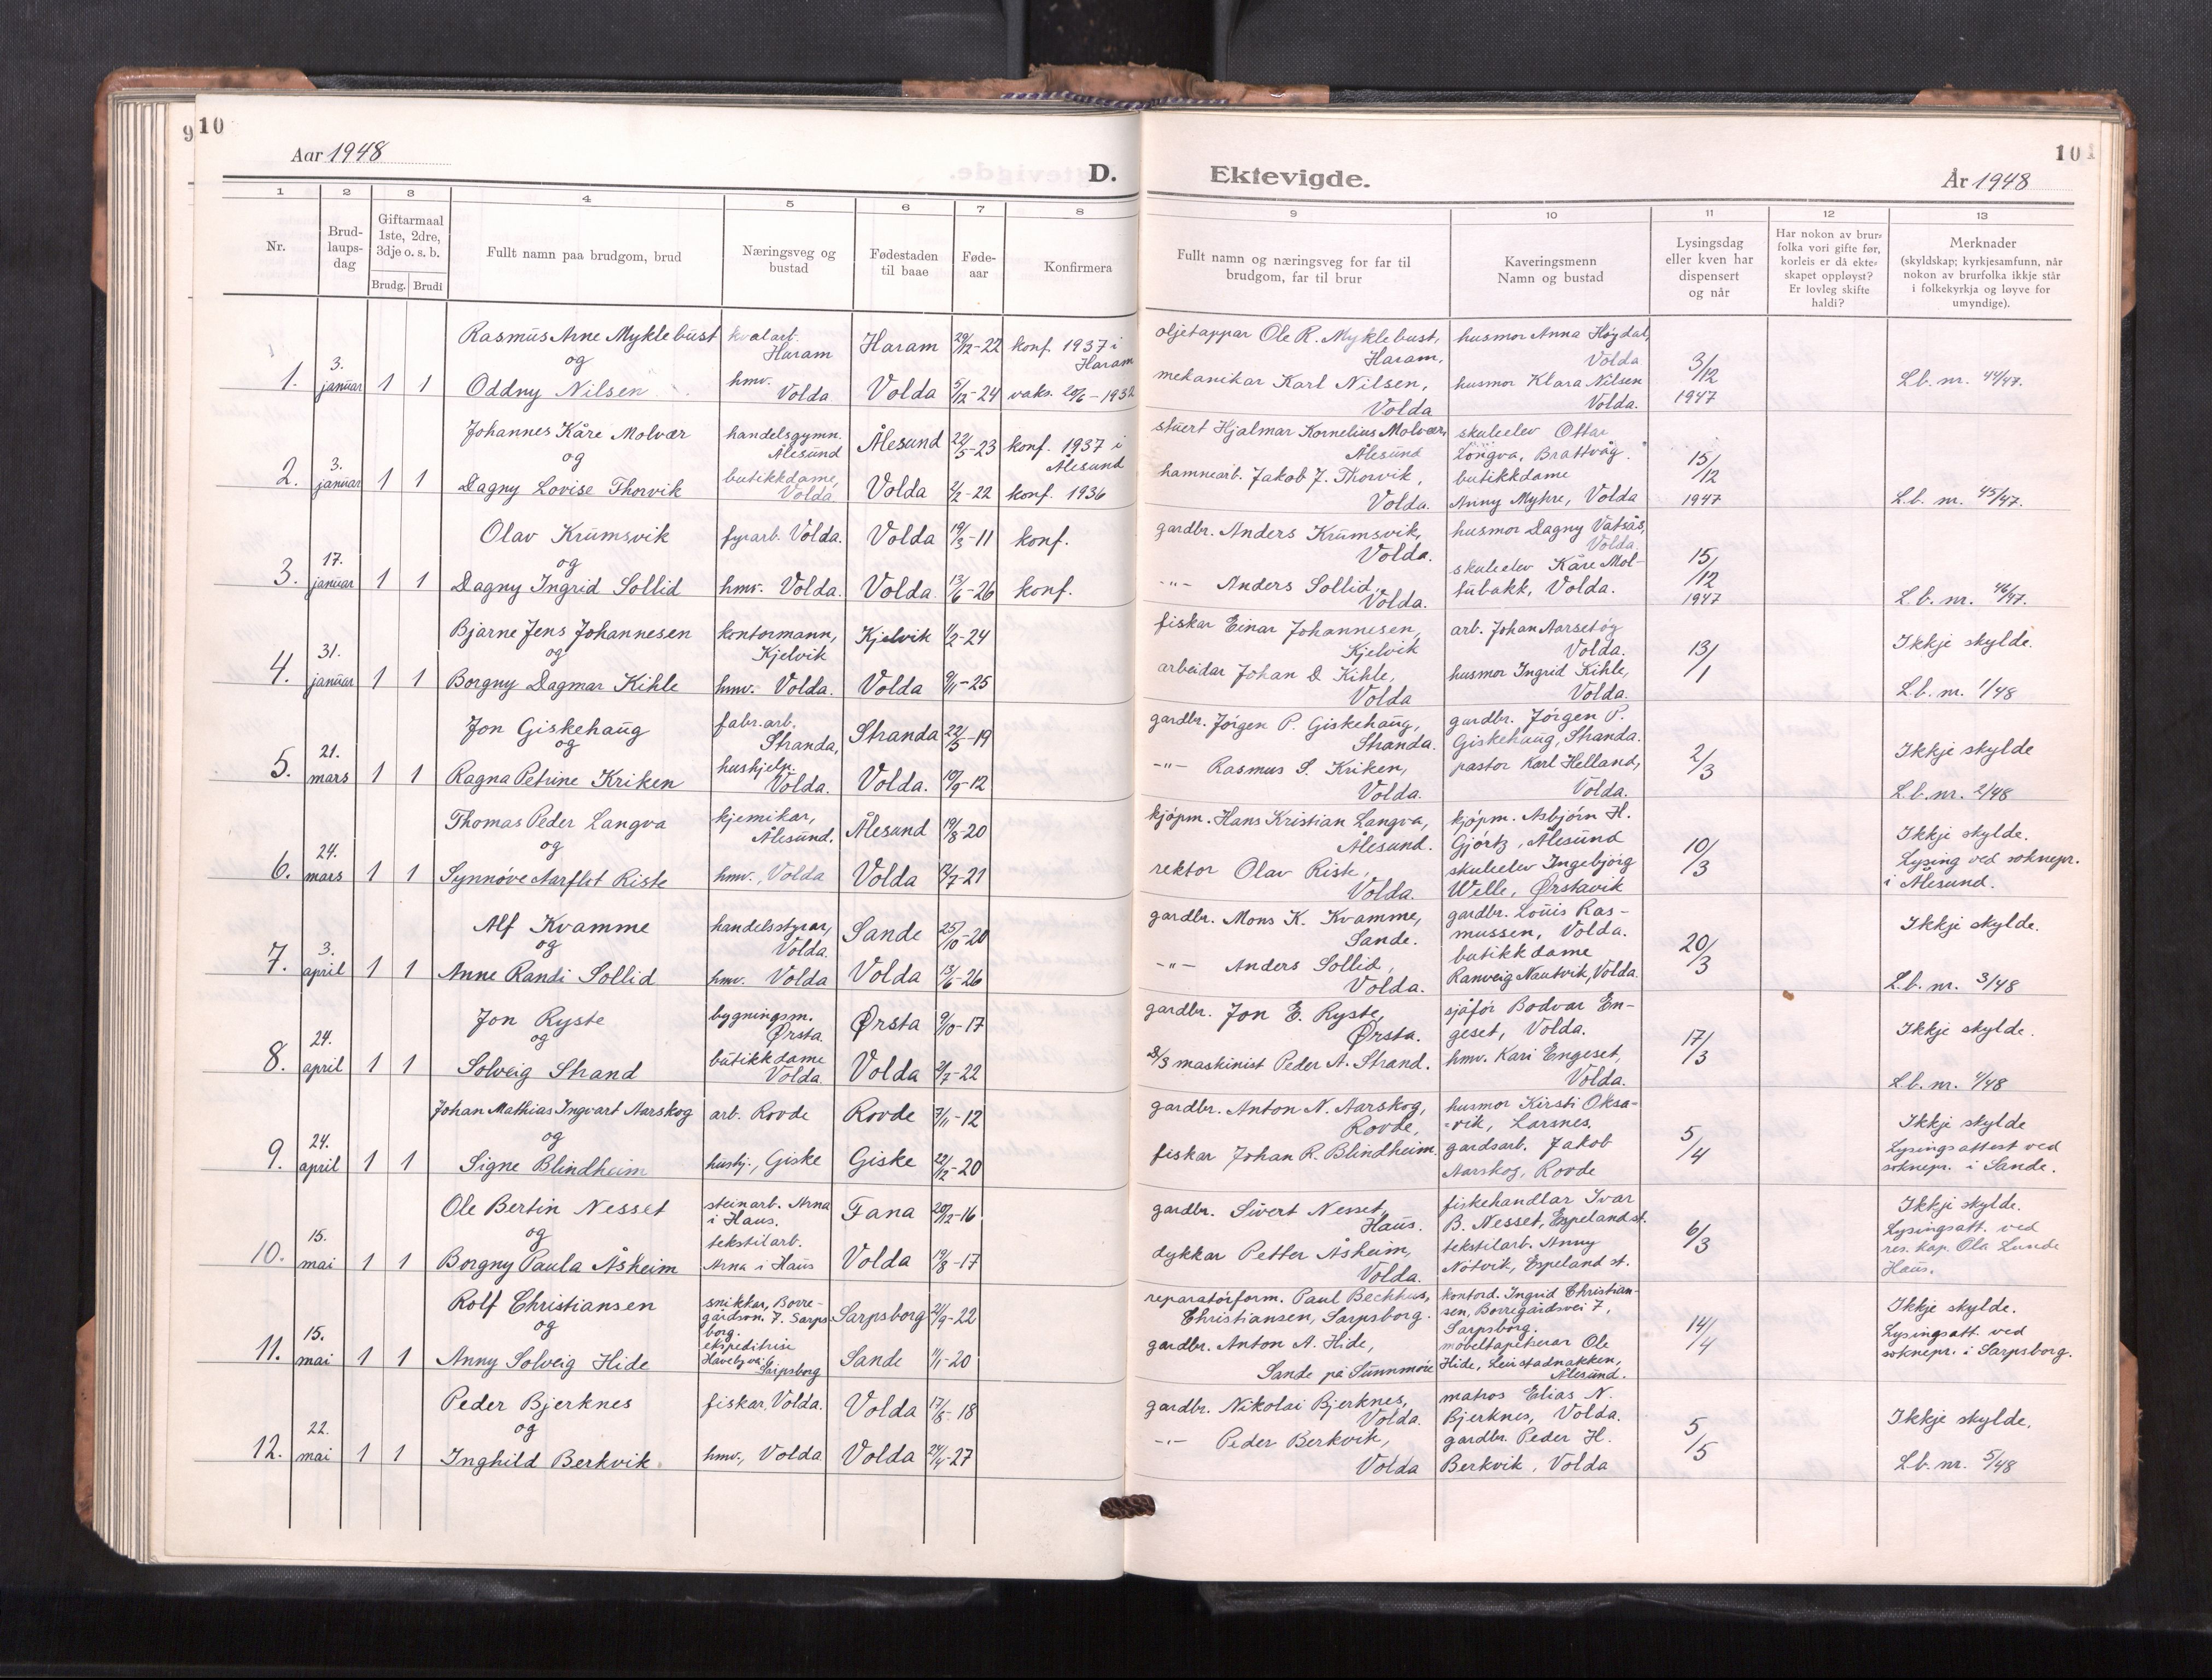 9 10
Aar 1948
D.
1 2 3 4 5 6 7 8
Nr.
Brud-
laups-
dag
Giftarmaal
1ste, 2dre,
3dje o. s. b.
Brudg. Brudi
Fullt namn paa brudgom, brud
Næringsveg og
bustad
Fødestaden
til baae
Føde-
aar
Konfirmera
1. 3. januar 1 1
Rasmus Arne Myklebust kvalarb. Haram Haram 29/12-22 konf. 1937 i Haram
og
Oddny Nilsen hmv. Volda Volda 5/12-24 vaks. 20/6-1932
2. 3. januar 1 1
Johannes Kåre Molvær handelsgymn. Ålesund Ålesund 22/5-23 konf. 1937 i Ålesund
og
Dagny Lovise Thorvik butikkdame, Volda Volda 2/2-22 konf. 1936
3. 17. januar 1 1
Olav Krumsvik fyrarb. Volda. Volda 19/3-11 konf.
og
Dagny Ingrid Sollid hmv. Volda. Volda. 13/6-26 konf.
4. 31. januar 1 1
Bjarne Jens Johannesen kontormann, Kjelvik Kjelvik 1/2-24
og
Borgny Dagmar Kihle hmv. Volda. Volda 9/11-25
5. 21. mars 1 1
Jon Giskehaug fabr.arb. Stranda, Stranda 22/5-19
og
Ragna Petrine Kriken hushjelp. Volda. Volda. 10/9-12
6. 24. mars 1 1
Thomas Peder Langva kjemikar, Ålesund. Ålesund 19/8-20
og
Synnøve Aarflot Riste hmv., Volda Volda -21
7. 3. april 1 1
Alf Kvamme handelsstyrar, Volda. Sande 25/10-20
og
Anne Randi Sollid hmv. Volda Volda 13/6-26
8. 24. april 1 1
Jon Ryste bygningsm. Ørsta Ørsta 9/10-17
og
Solveig Strand butikkdame Volda. Volda 2/7-22
9. 24. april 1 1
Johan Mathias Ingvart Aarskog arb. Rovde Rovde 7/11-12
og
Signe Blindheim hushj., Giske Giske 22/12-20
10. 15. mai 1 1
Ole Bertin Nesset steinarb. Arna i Haus. Fana 20/12-16
og
Borgny Paula Åsheim tekstilarb. Arna i Haus Volda 19/8-17
11. 15. mai 1 1
Rolf Christiansen snikkar, Borre-
gårdsvn. 7. Sarps
borg. Sarpsborg 21/9-22
og
Anny Solveig Hide ekspeditrise Sarpsborg Sande 11/1-20
12. 22. mai 1 1
Peder Bjerknes fiskar, Volda. Volda 17/8-18
og
Inghild Berkvik hmv., Volda Volda 24/4-27
10
Ektevigde.
År 1948
9 10 11 12 13
Fullt namn og næringsveg for far til
brudgom, far til brur
Kaveringsmenn
Namn og bustad
Lysingsdag
eller kven har
dispensert
og når
Har nokon av brur-
folka vori gifte før,
korleis er då ekte-
skapet oppløyst?
Er lovleg skifte
haldi?
Merknader
(skyldskap; kyrkjesamfunn, når
nokon av brurfolka ikkje står
i folkekyrkja og løyve for
umyndige).
oljetappar Ole R. Myklebust, husmor Anna Høydal,
Haram. Volda 3/12
mekanikar Karl Nilsen, husmor Klara Nilsen L.b. nr. 44/47.
Volda Volda. 1947
stuert Hjalmar Kornelius Molvær, skuleelev Ottar
Ålesund Longva, Brattvåg. 15/12
hamnearb. Jakob J. Thorvik, butikkdame
Volda. Anny Myhre, Volda 1947 L.b. nr. 45/47.
gardbr. Anders Krumsvik, husmor Dagny Vatsås,
Volda. Volda 15/12
-"- Anders Sollid, skuleelev Kåre Mol-
Volda. tubakk, Volda. 1947 L.b. nr. 46/47.
fiskar Einar Johannesen, arb. Johan Aarsetøg
Kjelvik Volda. 13/1 Ikkje skylde.
arbeidar Johan D Kihle, husmor Ingrid Kihle,
Volda Volda. L.b. nr. 1/48
gardbr. Jørgen P. Giskehaug, gardbr. Jørgen P.
Stranda. Giskehaug, Stranda. 2/3 Ikkje skylde
-"- Rasmus S. Kriken, pastor Karl Helland,
Volda. Volda. L.b. nr. 2/48
kjøpm. Hans Kristian Langva, kjøpm. Asbjørn H.
Ålesund. Gjørtz, Ålesund 10/3 Ikkje skylde.
rektor Olav Riste, skuleelev Ingebjørg Lysing ved soknepr.
Volda. Welle, Ørstavik i Ålesund.
gardbr. Mons K. Kvamme, gardbr. Louis Ras-
Sande. mussen, Volda. 20/3 Ikkje skylde.
-"- Anders Sollid, butikkdame
Volda. Ranveig Nautvik, Volda. L.b. nr. 3/48
gardbr. Jon E. Ryste, sjåfør Bodvar En-
Ørsta. geset, Volda. 17/3 Ikkje skylde.
D/S maskinist Peder A. Strand. hmv. Kari Engeset,
Volda. L.b. nr. 4/48
gardbr. Anton N. Aarskog, husmor Kirsti Oksa-
Rovde, -vik, Larsnes. 5/4 Ikkje skylde
fiskar Johan R. Blindheim. gardsarb. Jakob Lysingsattest ved
Aarskog, Rovde soknepr. i Sande.
gardbr. Sivert Nesset, fiskehandlar Ivar Ikkje skylde.
Haus. B. Nesset, Espeland st. 6/3 Lysingsatt. ved
dykkar Petter Åsheim, tekstilarb. Anny res. kap. Ola Lunde
Volda. Nøtvik, Espeland st. Haus.
reparatørform. Paul Bechhus, kontord. Ingrid Christian-
Christiansen, Sarpsborg. sen, Borregårdsvei 7, Ikkje skylde.
Sarpsborg. 14/4 Lysingsatt. ved
gardbr. Anton A. Hide, møbeltapetserar Ole soknepr. i Sarpsborg.
Sande på Sunnmøre Hide, Leistadnakken,
Ålesund.
gardbr. Nikolai Bjerknes, matros Elias N.
Volda. Bjerknes, Volda. 5/5 Ikkje skylde.
-"- Peder Berkvik, gardbr. Peder H.
Volda Berkvik, Volda L.b. nr. 5/48